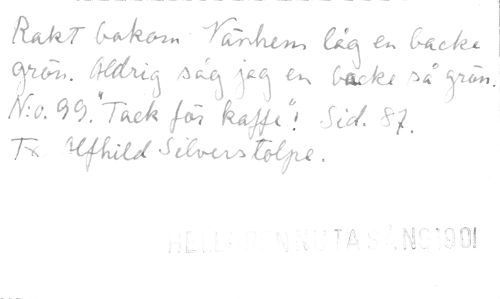 Rakt bakom Värhem låg en backe
grön. Aldrig såg jag en backe så grön.
N:o. 99. "Tack för kaffe"! Sid. 87.
Tx Ulfhild Silverstolpe.